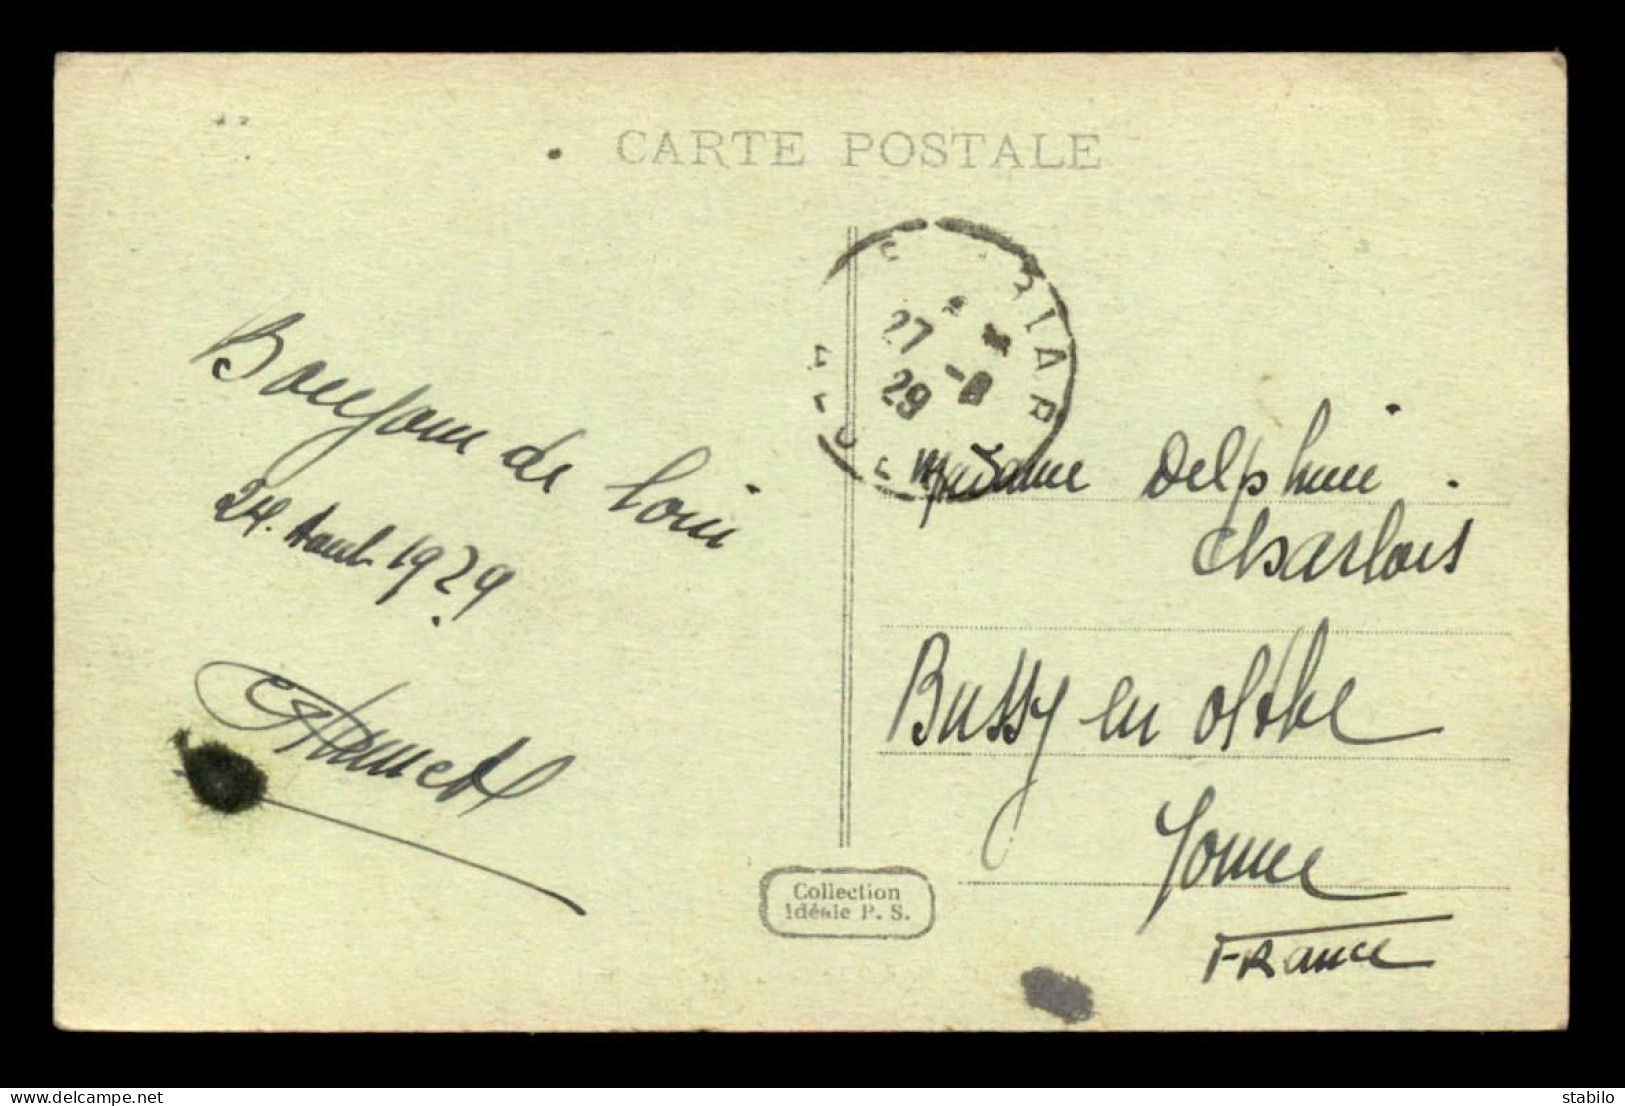 CARTE POSTALE
27 -8
29
Bonjour de loin
24. Aout 1929
Madame Delphine
Charlois
Bussy en Othe
Yonne
France
Collection
Idéale P. S.
www.delcampe.net
stabilo